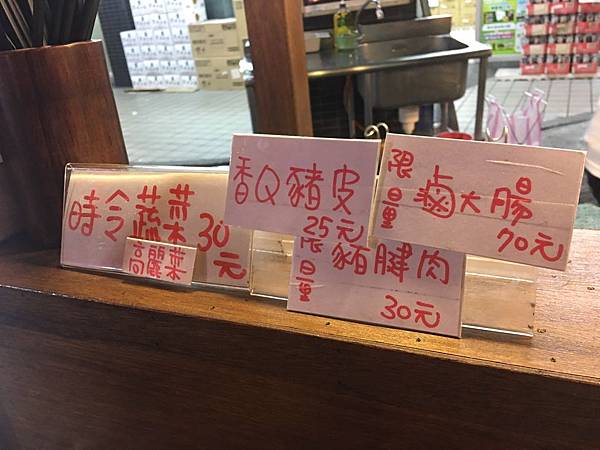 時令蔬菜30元
高麗菜
香Q豬皮
25元
限量 鹵大腸
70元
限量 豬腱肉
30元